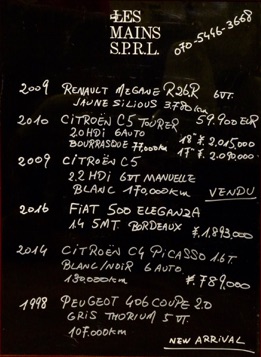 LES
MAINS
S.P.R.L.
070-5446-3668
2009 RENAULT MEGANE R26R 6VT.
JAUNE SILIOUS 3780km
2010 CITROËN C5 TOURER 59.900 EUR
2.0 HDI 6AUTO 18" ¥. 2.015.000
BOURRASQUE 77.000km 17" ¥. 2.090.000.
2009 CITROËN C5
2.2 HDI 6VT MANUELLE
BLANC 170,000km VENDU
2016 FIAT 500 ELEGANZA
1.4 5MT BORDEAUX ¥.1,893,000
2014 CITROËN C4 PICASSO 1.6T
BLANC/NOIR 6 AUTO
130,000km ¥.789,000
1998 PEUGEOT 406 COUPE 2.0
GRIS THORIUM 5 VT.
107.000km
NEW ARRIVAL